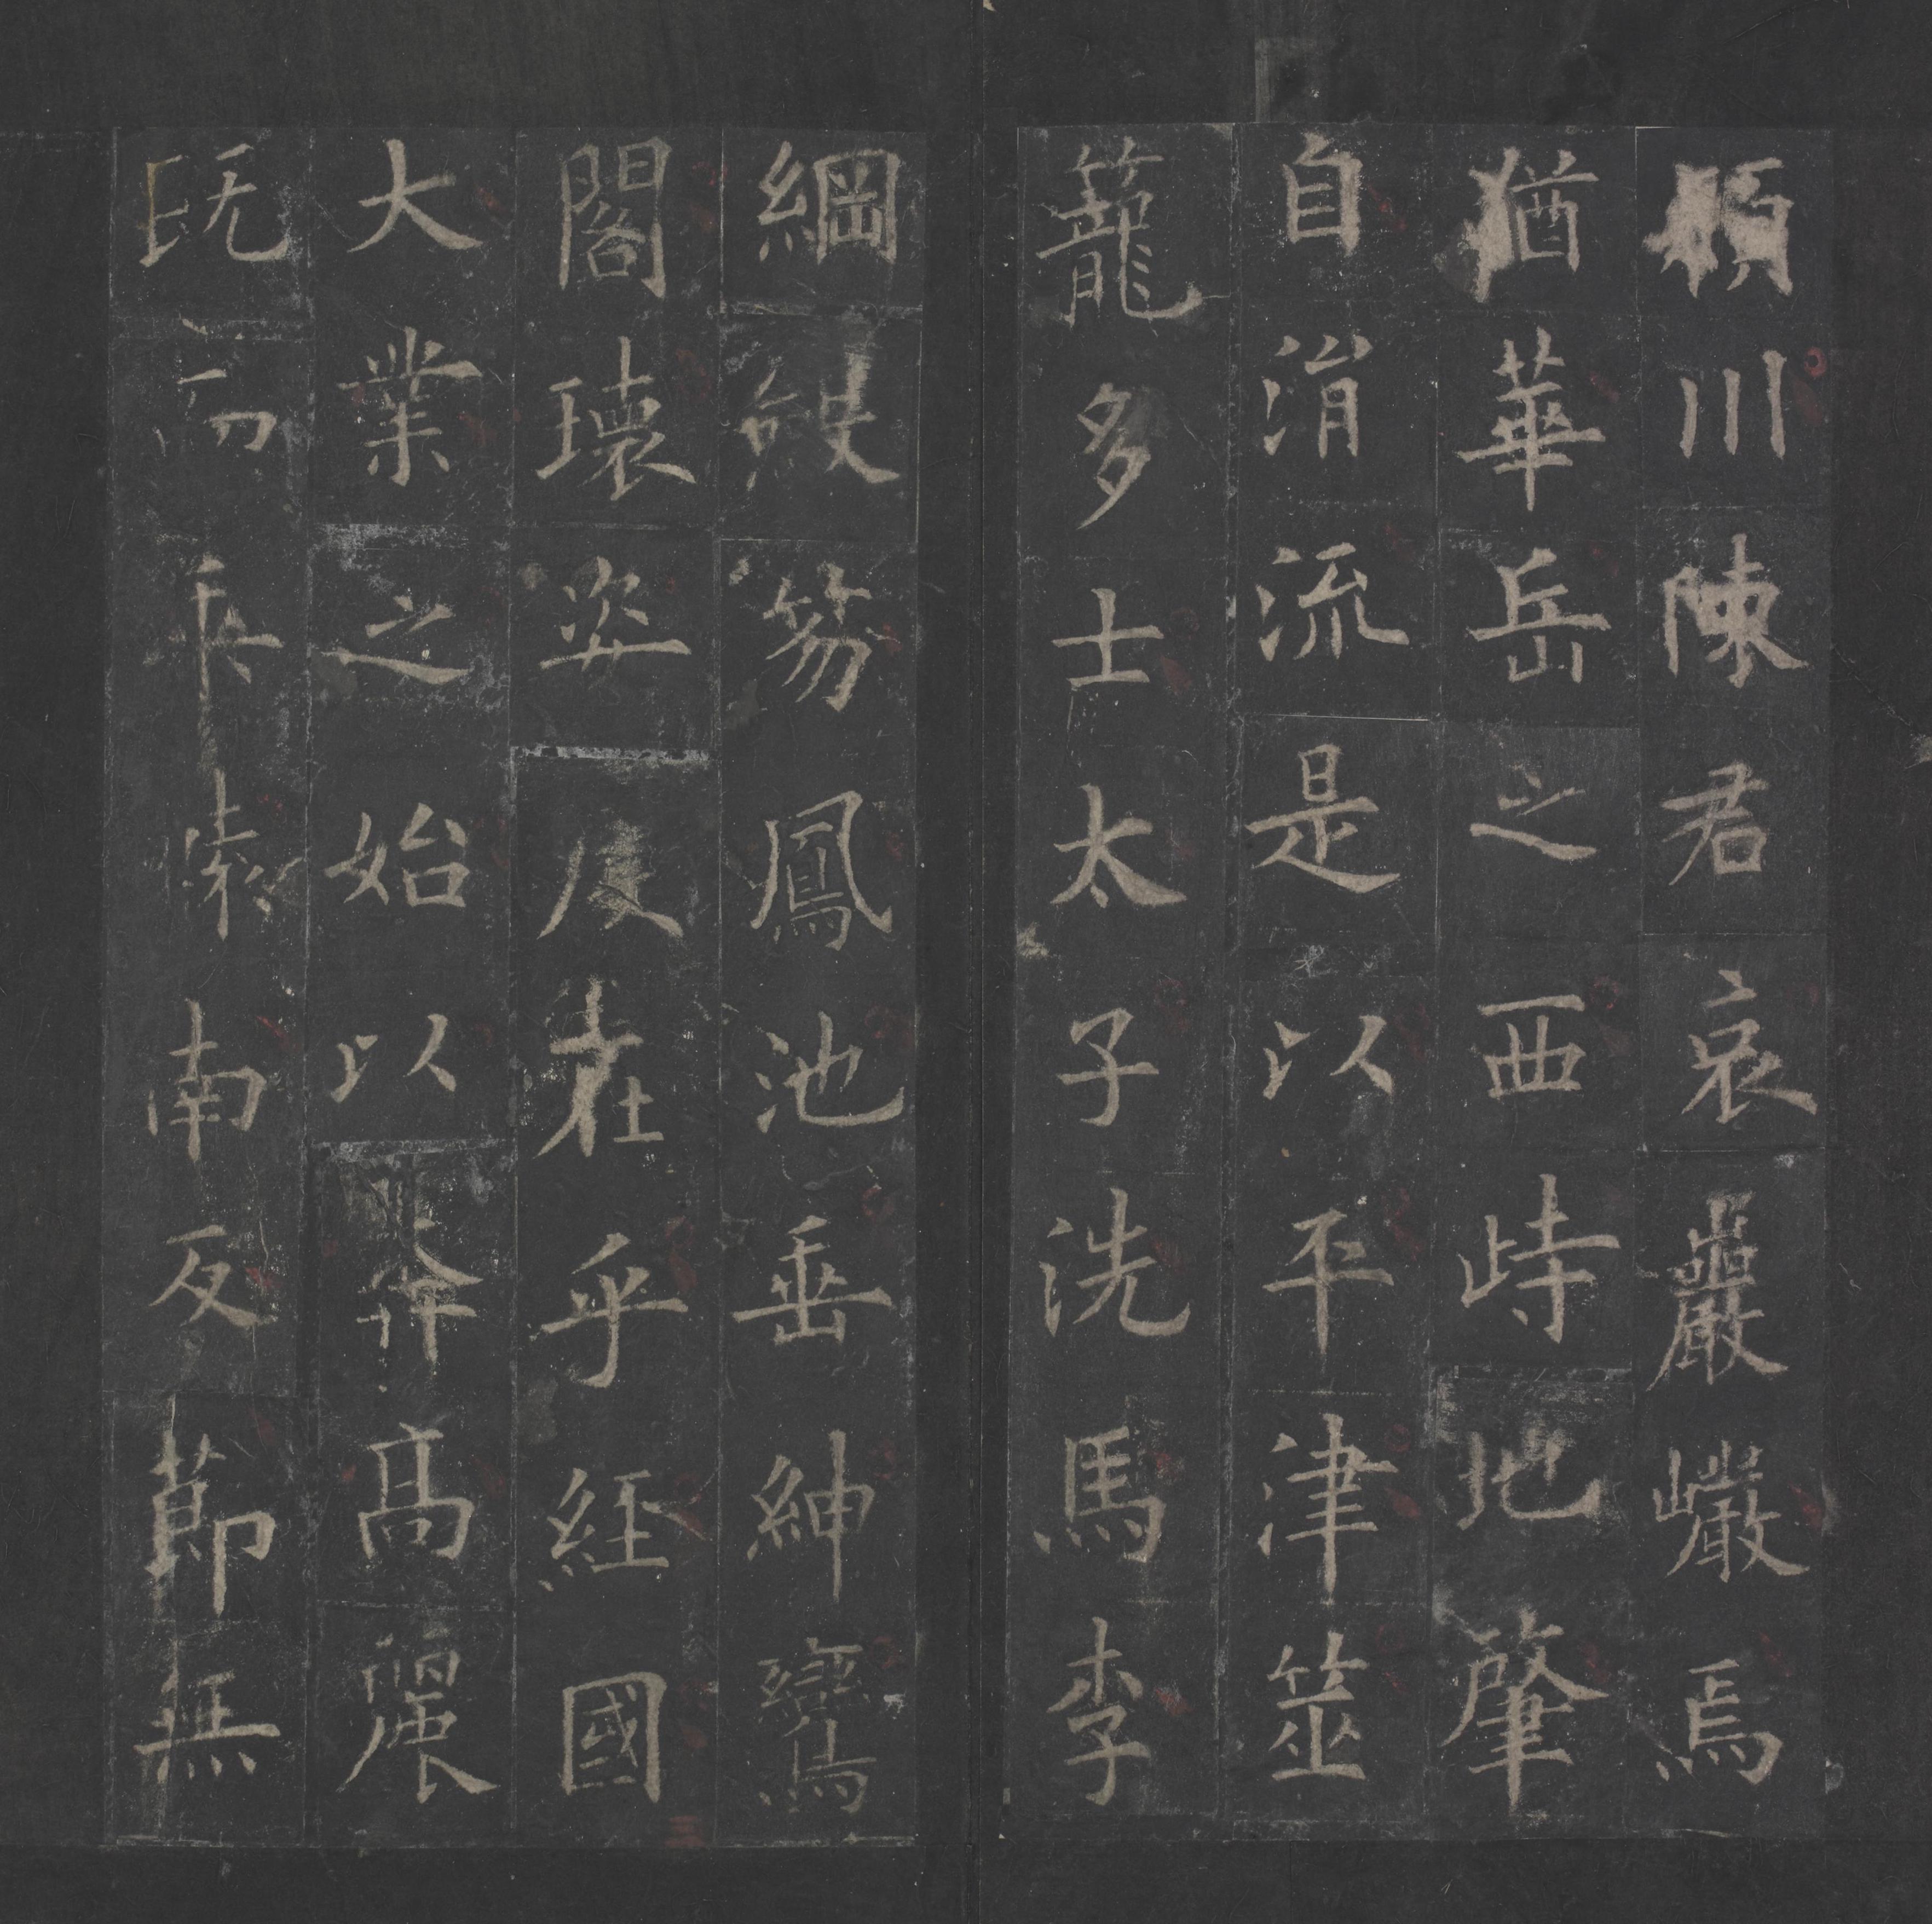 川陳君哀巖巗焉
猶華岳之西峙地肇
自涓流是以平津筮
籠多士太子洗馬李
綱笏鳳池垂紳鸞
閣瓌姿度在乎經國
大業之始以高麗
既轅南反節無